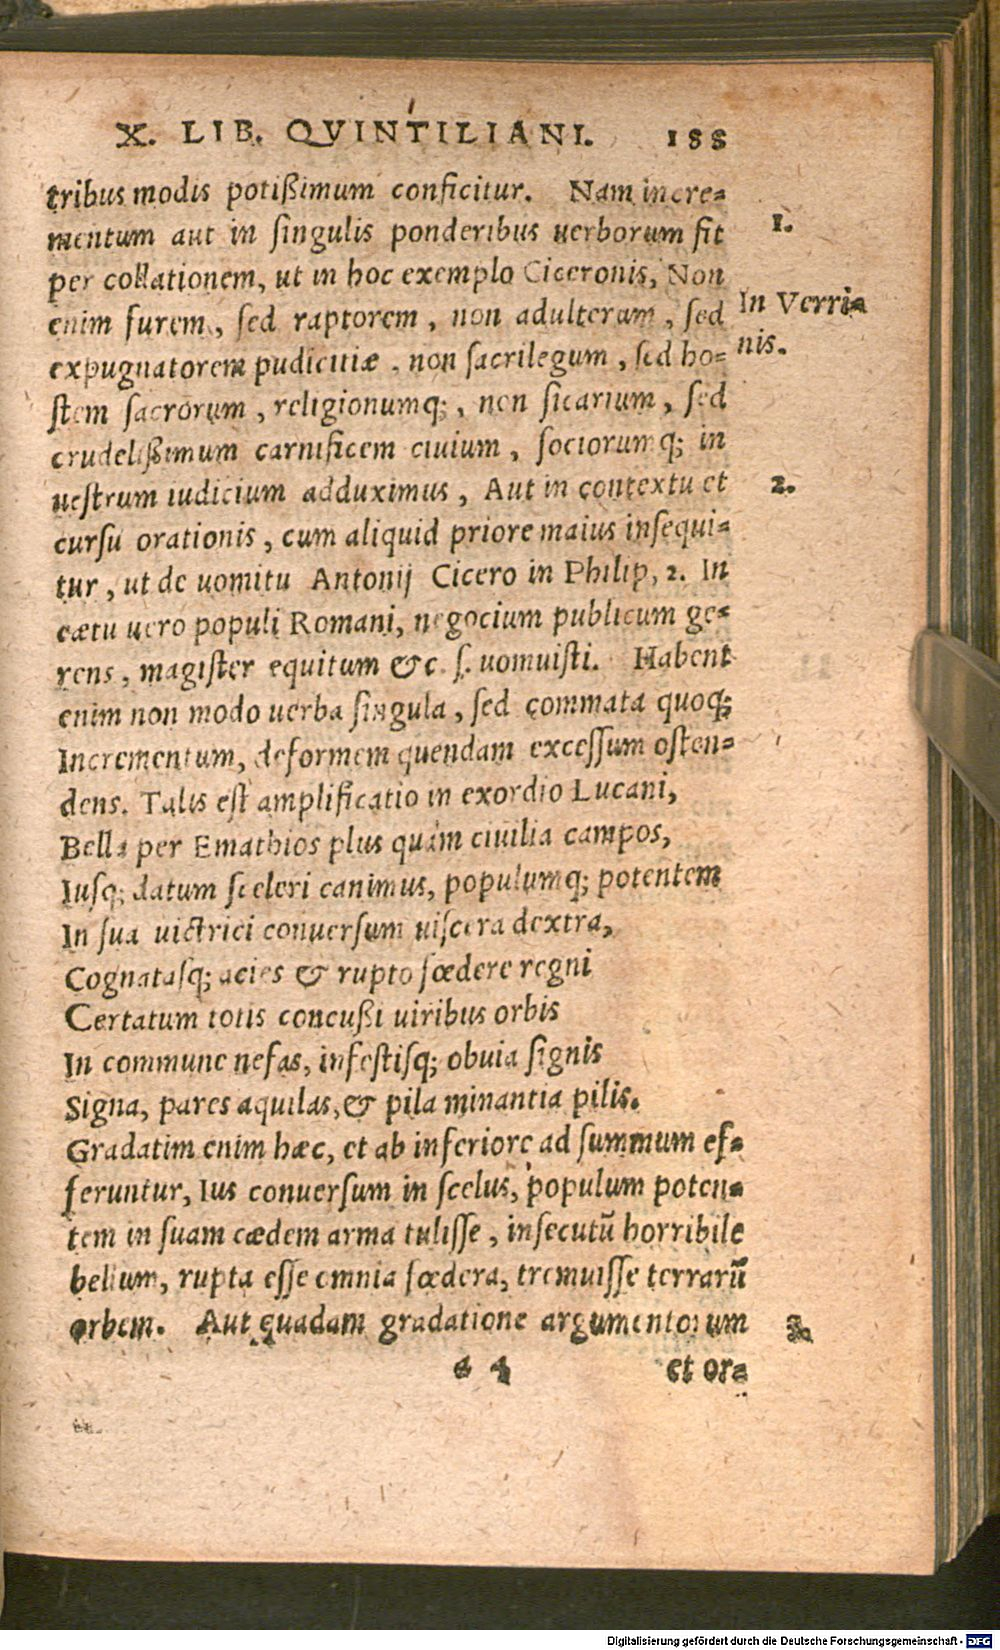 X. LIB. QVINTILIANI. 188
tribus modis potißimum conficitur. Nam incre-
mentum aut in ſingulis ponderibus uerborum fit
1.
per collationem, ut in hoc exemplo Ciceronis, Non
enim furem, ſed raptorem, non adulterum, ſed
In Verri-
expugnatorem pudicitiæ, non ſacrilegum, ſed ho-
nis.
ſtem ſacrorum, religionumq;, non ſicarium, ſed
crudelißimum carnificem ciuium, ſociorumq; in
ueſtrum iudicium adduximus, Aut in contextu et
2.
curſu orationis, cum aliquid priore maius inſequi-
tur, ut de uomitu Antonij Cicero in Philip, 2. In
cœtu uero populi Romani, negocium publicum ge-
rens, magiſter equitum &c. ſ. uomuiſti. Habent
enim non modo uerba ſingula, ſed commata quoq;
Incrementum, deformem quendam exceſſum oſten-
dens. Talis eſt amplificatio in exordio Lucani,
Bella per Emathios plus quàm ciuilia campos,
Iuſq; datum ſceleri canimus, populumq; potentem
In ſua uictrici conuerſum uiſcera dextra,
Cognataſq; acies & rupto fœdere regni
Certatum totis concußi uiribus orbis
In commune nefas, infeſtiſq; obuia ſignis
Signa, pares aquilas, & pila minantia pilis.
Gradatim enim hæc, et ab inferiore ad ſummum ef-
feruntur, Ius conuerſum in ſcelus, populum poten-
tem in ſuam cædem arma tuliſſe, inſecutũ horribile
bellum, rupta eſſe omnia fœdera, tremuiſſe terrarũ
orbem. Aut quadam gradatione argumentorum
3.
4 et or-
Digitalisierung gefördert durch die Deutsche Forschungsgemeinschaft - DFG